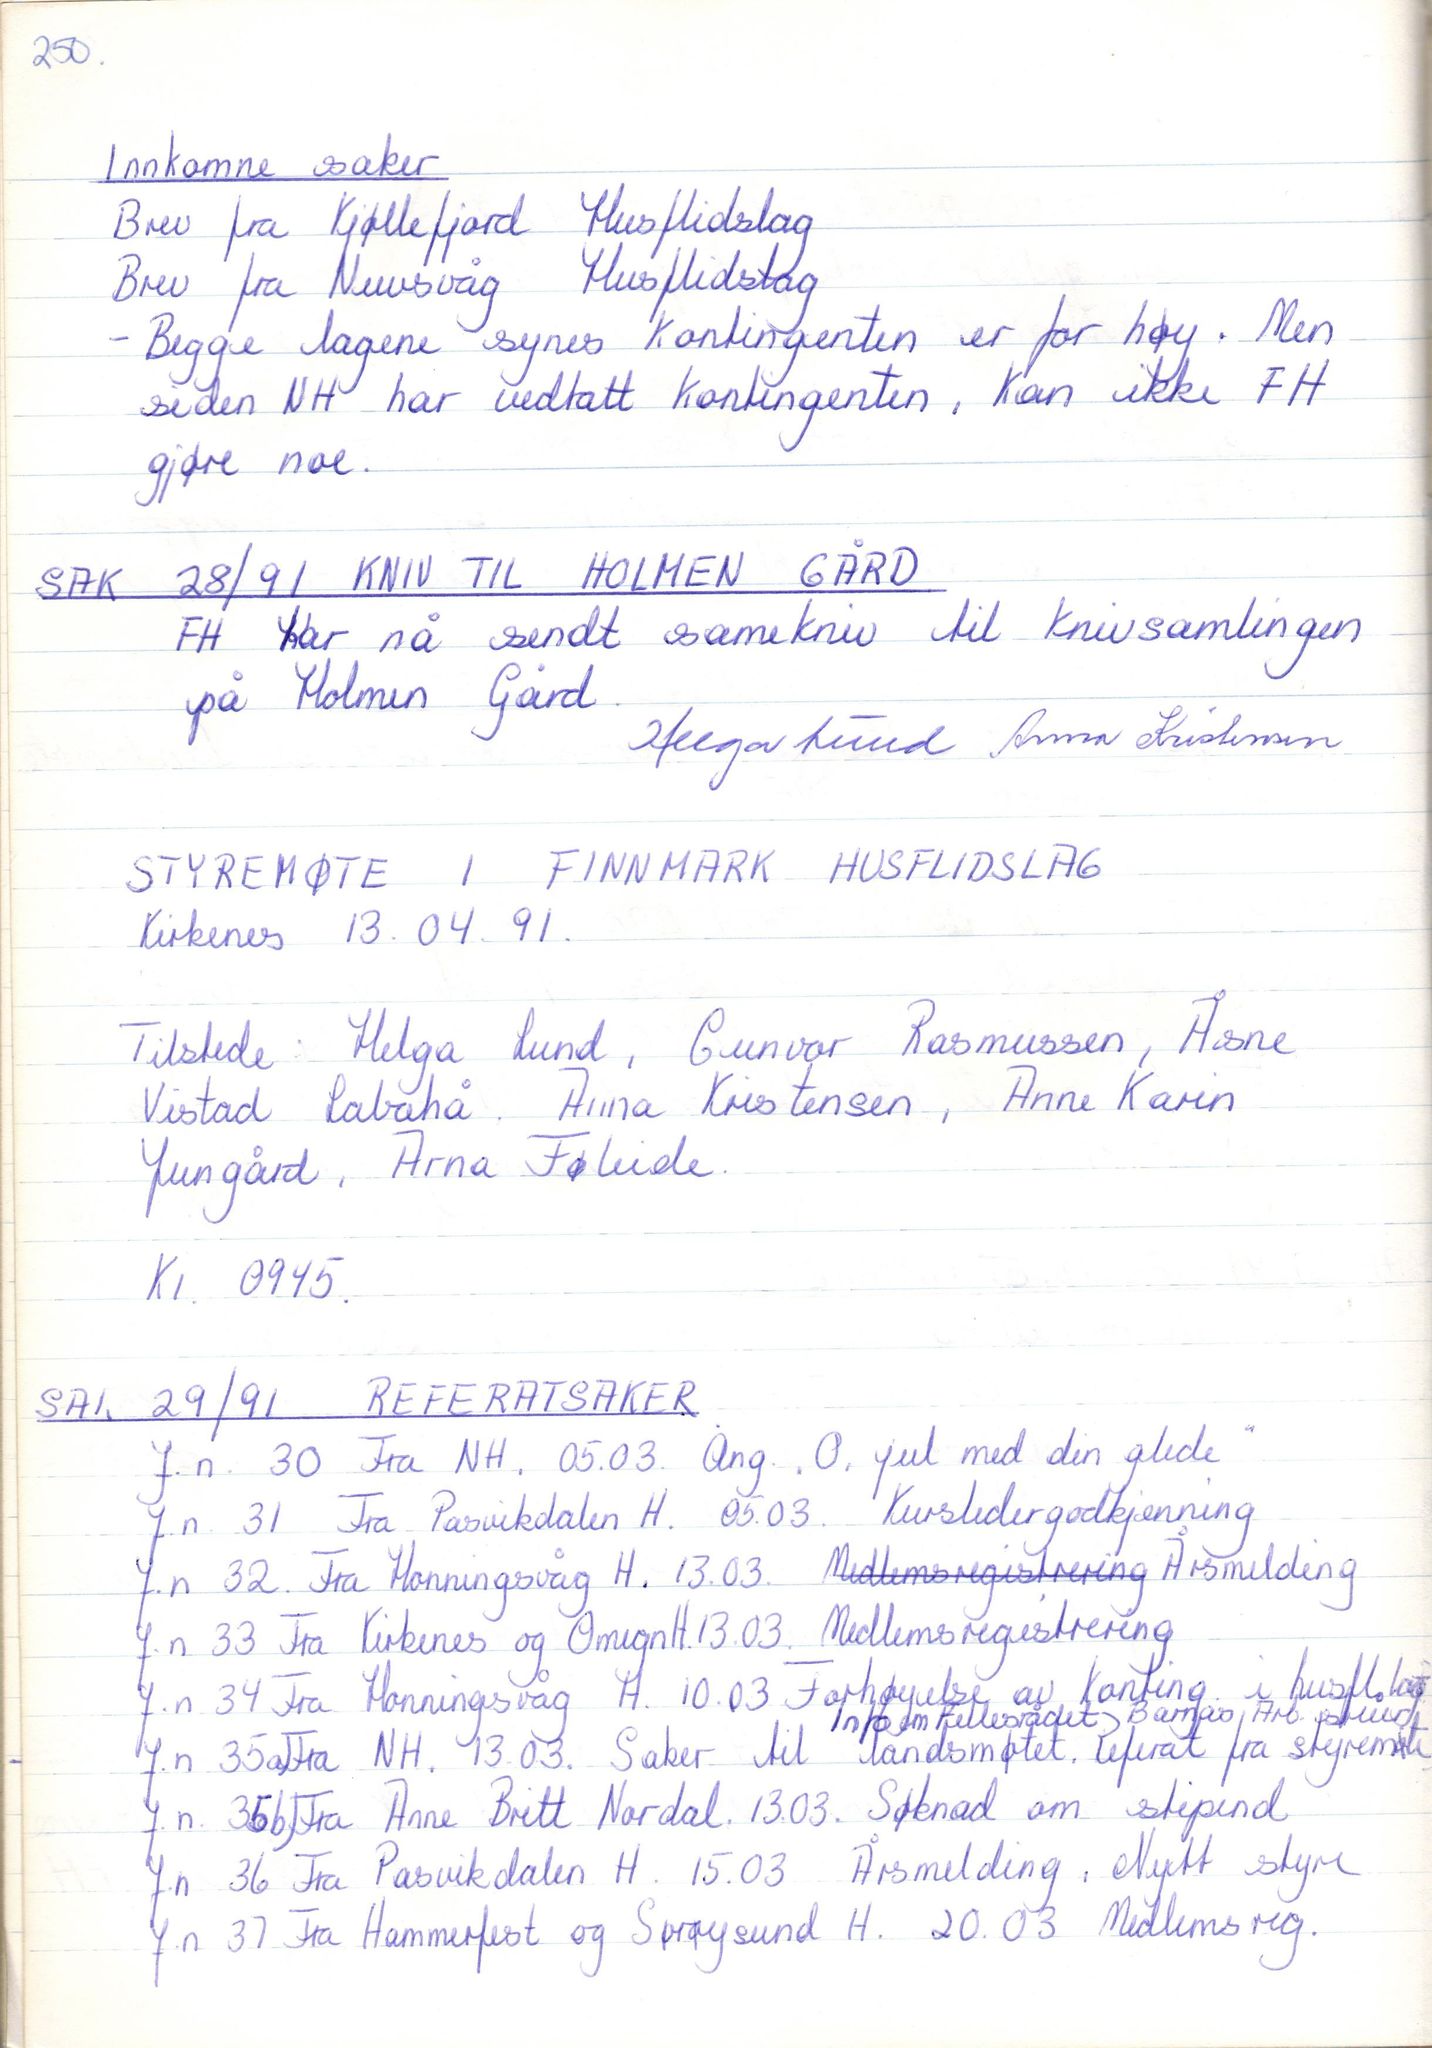 250.
Innkomne saker
Brev fra Kjøllefjord Husflidslag
Brev fra Nuvsvåg Husflidslag
- Begge lagene synes kontingenten er for høy. Men
siden NH har vedtatt kontingenten, kan ikke FH
gjøre noe.
SAK 28/91 KNIV TIL HOLMEN GÅRD
FH har nå sendt samekniv til knivsamlingen
på Holmen Gård.
Helga Lund Anna Kristensen
STYREMØTE I FINNMARK HUSFLIDSLAG
Kirkenes 13.04.91.
Tilstede: Helga Lund, Gunvor Rasmussen, Åsne
Vistad Labahå. Anna Kristensen, Anne Karin
Jungård, Arna Føleide.
Kl. 0945.
SAK 29/91 REFERATSAKER
J.n. 30 Fra NH. 05.03. Ang. "O, jul med din glede"
J.n. 31 Fra Pasvikdalen H. 05.03. Kursledergodkjenning
J.n 32. Fra Honningsvåg H. 13.03. Medlemsregistrering Årsmelding
J.n 33 Fra Kirkenes og Omegn H. 13.03. Medlemsregistrering
J.n 34 Fra Honningsvåg H. 10.03 Forhøyelse av konting. i husfl.lag
Info om Fellesrådet, Barnas Arb.
J.n 35a) Fra NH. 13.03. Saker til landsmøtet. Referat fra styremøte
J.n. 35b) Fra Anne Britt Nordal. 13.03. Søknad om stipend
J.n 36 Fra Pasvikdalen H. 15.03 Årsmelding. Nytt styre
J.n 37 Fra Hammerfest og Sørøysund H. 20.03 Medlemsreg.